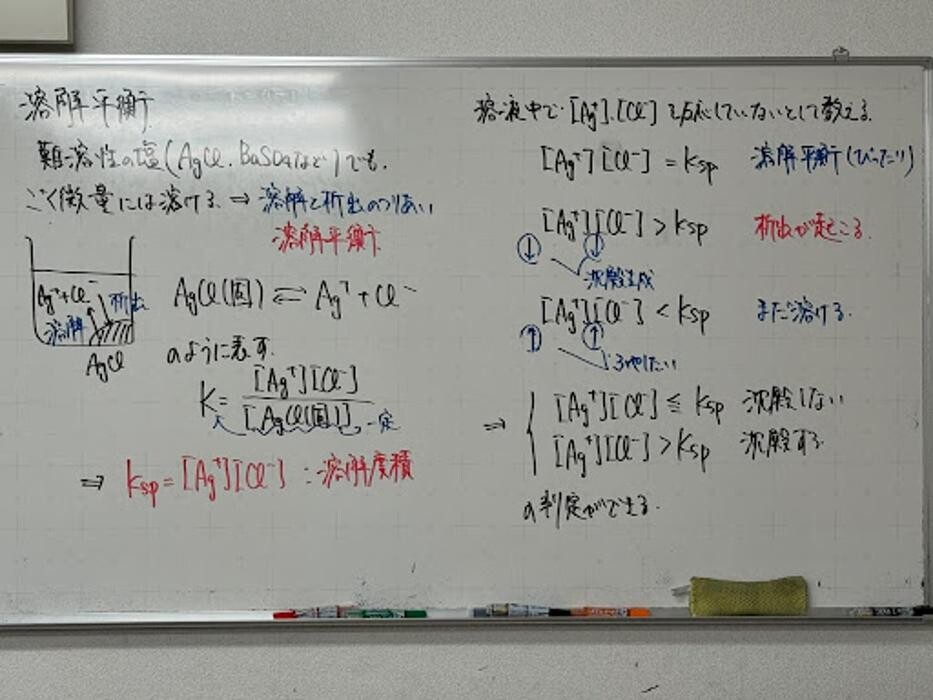 溶解平衡
難溶性の塩(AgCl.BaSO4など)でも、
ごく微量には溶ける ⇒ 溶解と析出のつりあい
溶解平衡
Ag⁺+Cl⁻ 析出
溶解
AgCl
AgCl(固) ⇄ Ag⁺+Cl⁻
のように表す.
K = [Ag⁺][Cl⁻] / [AgCl(固)] 一定
⇒ Ksp = [Ag⁺][Cl⁻] : 溶解度積
溶液中で [Ag⁺].[Cl⁻] を反応していないとして考える.
[Ag⁺][Cl⁻] = Ksp 溶解平衡(ぴったり)
[Ag⁺][Cl⁻] > Ksp 析出が起こる.
↓ ↓ 沈殿生成
[Ag⁺][Cl⁻] < Ksp まだ溶ける.
↑ ↑ ふやしたい
⇒ { [Ag⁺][Cl⁻] ≦ Ksp 沈殿しない
[Ag⁺][Cl⁻] > Ksp 沈殿する
の判定ができる.